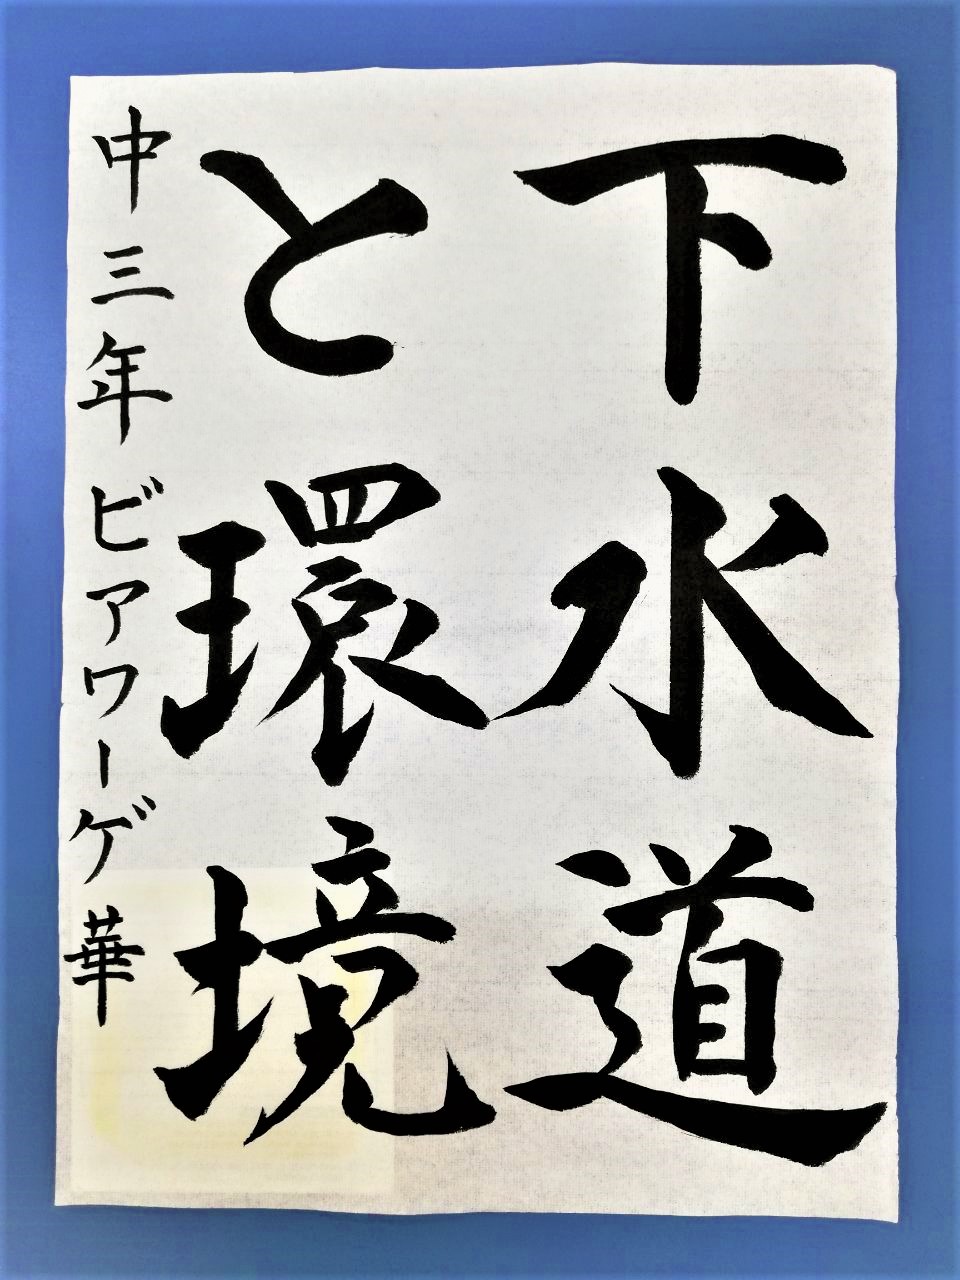 下水道
と環境
中三年ビアワーゲ華